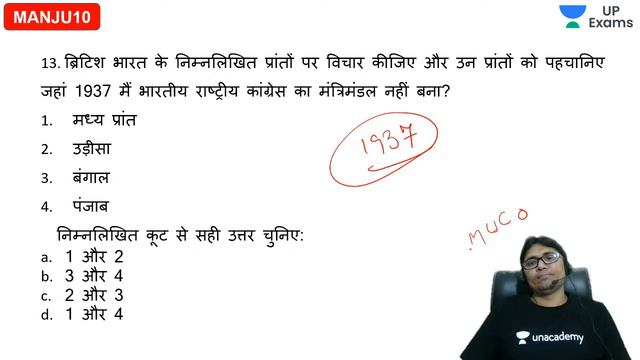 MANJU10
UP
Exams
13. ब्रिटिश भारत के निम्नलिखित प्रांतों पर विचार कीजिए और उन प्रांतों को पहचानिए
जहां 1937 मैं भारतीय राष्ट्रीय कांग्रेस का मंत्रिमंडल नहीं बना?
1. मध्य प्रांत
2. उड़ीसा
3. बंगाल
4. पंजाब
1937
निम्नलिखित कूट से सही उत्तर चुनिए:
MUCO
a. 1 और 2
b. 3 और 4
c. 2 और 3
d. 1 और 4
unacademy